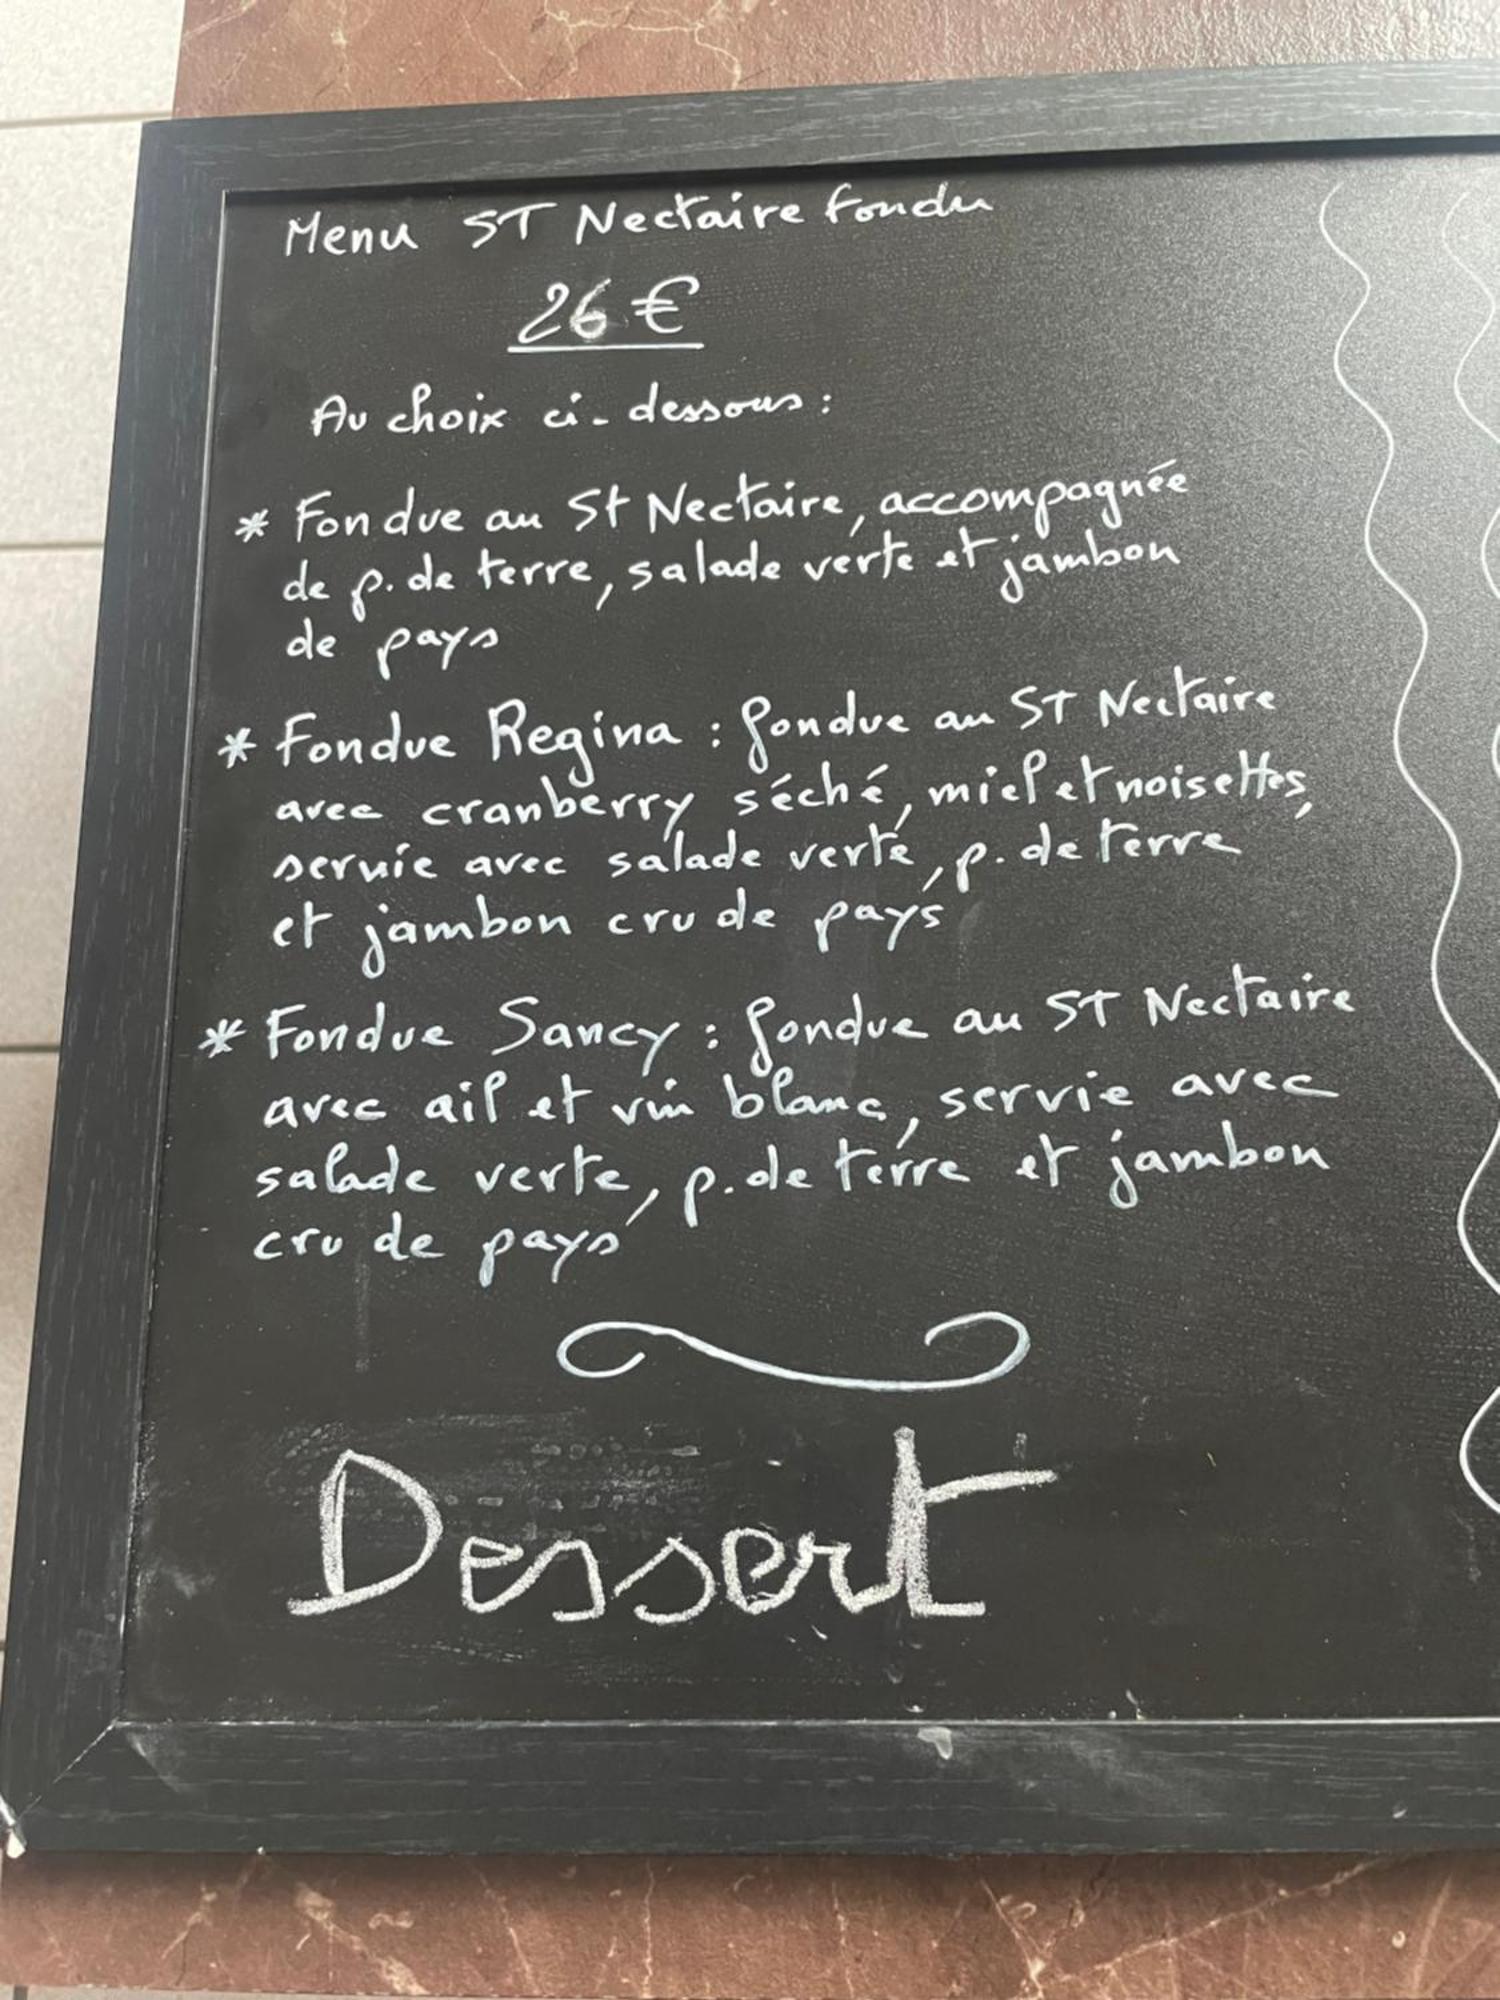 Menu ST Nectaire fondu
26 €
Au choix ci-dessous :
* Fondue au St Nectaire, accompagnée
de p. de terre, salade verte et jambon
de pays
* Fondue Regina : fondue au ST Nectaire
avec cranberry séché, miel et noisettes,
servie avec salade verte, p. de terre
et jambon cru de pays
* Fondue Sancy : fondue au ST Nectaire
avec ail et vin blanc, servie avec
salade verte, p. de terre et jambon
cru de pays
Dessert